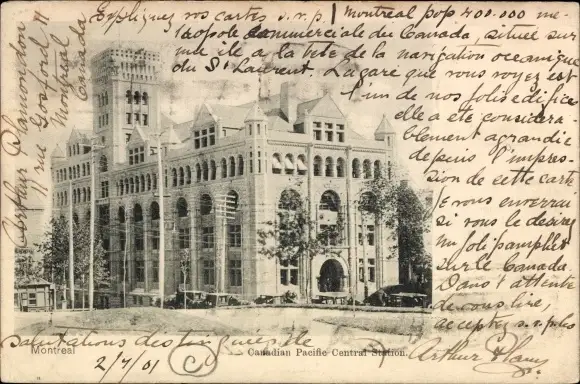 Expliquez vos cartes s.v.p. / Montreal pop 400.000 me-
tropole commerciale du Canada, située sur
une ile a la tete de la navigation oceanique
du St Laurent. La gare que vous voyez est
l'un de nos jolis edifices
elle a eté considera-
blement agrandie
depuis l'impres-
sion de cette carte
Je vous enverrai
si vous le desirez
un joli pamphlet
sur le Canada.
Dans l'attente
de vous lire,
acceptez s.v.plus
salutations distinguées de
Arthur Plam
2/7/01
Montreal
Canadian Pacific Central Station.
Arthur Plamondon
11 rue Gosford 11
Montreal
Canada